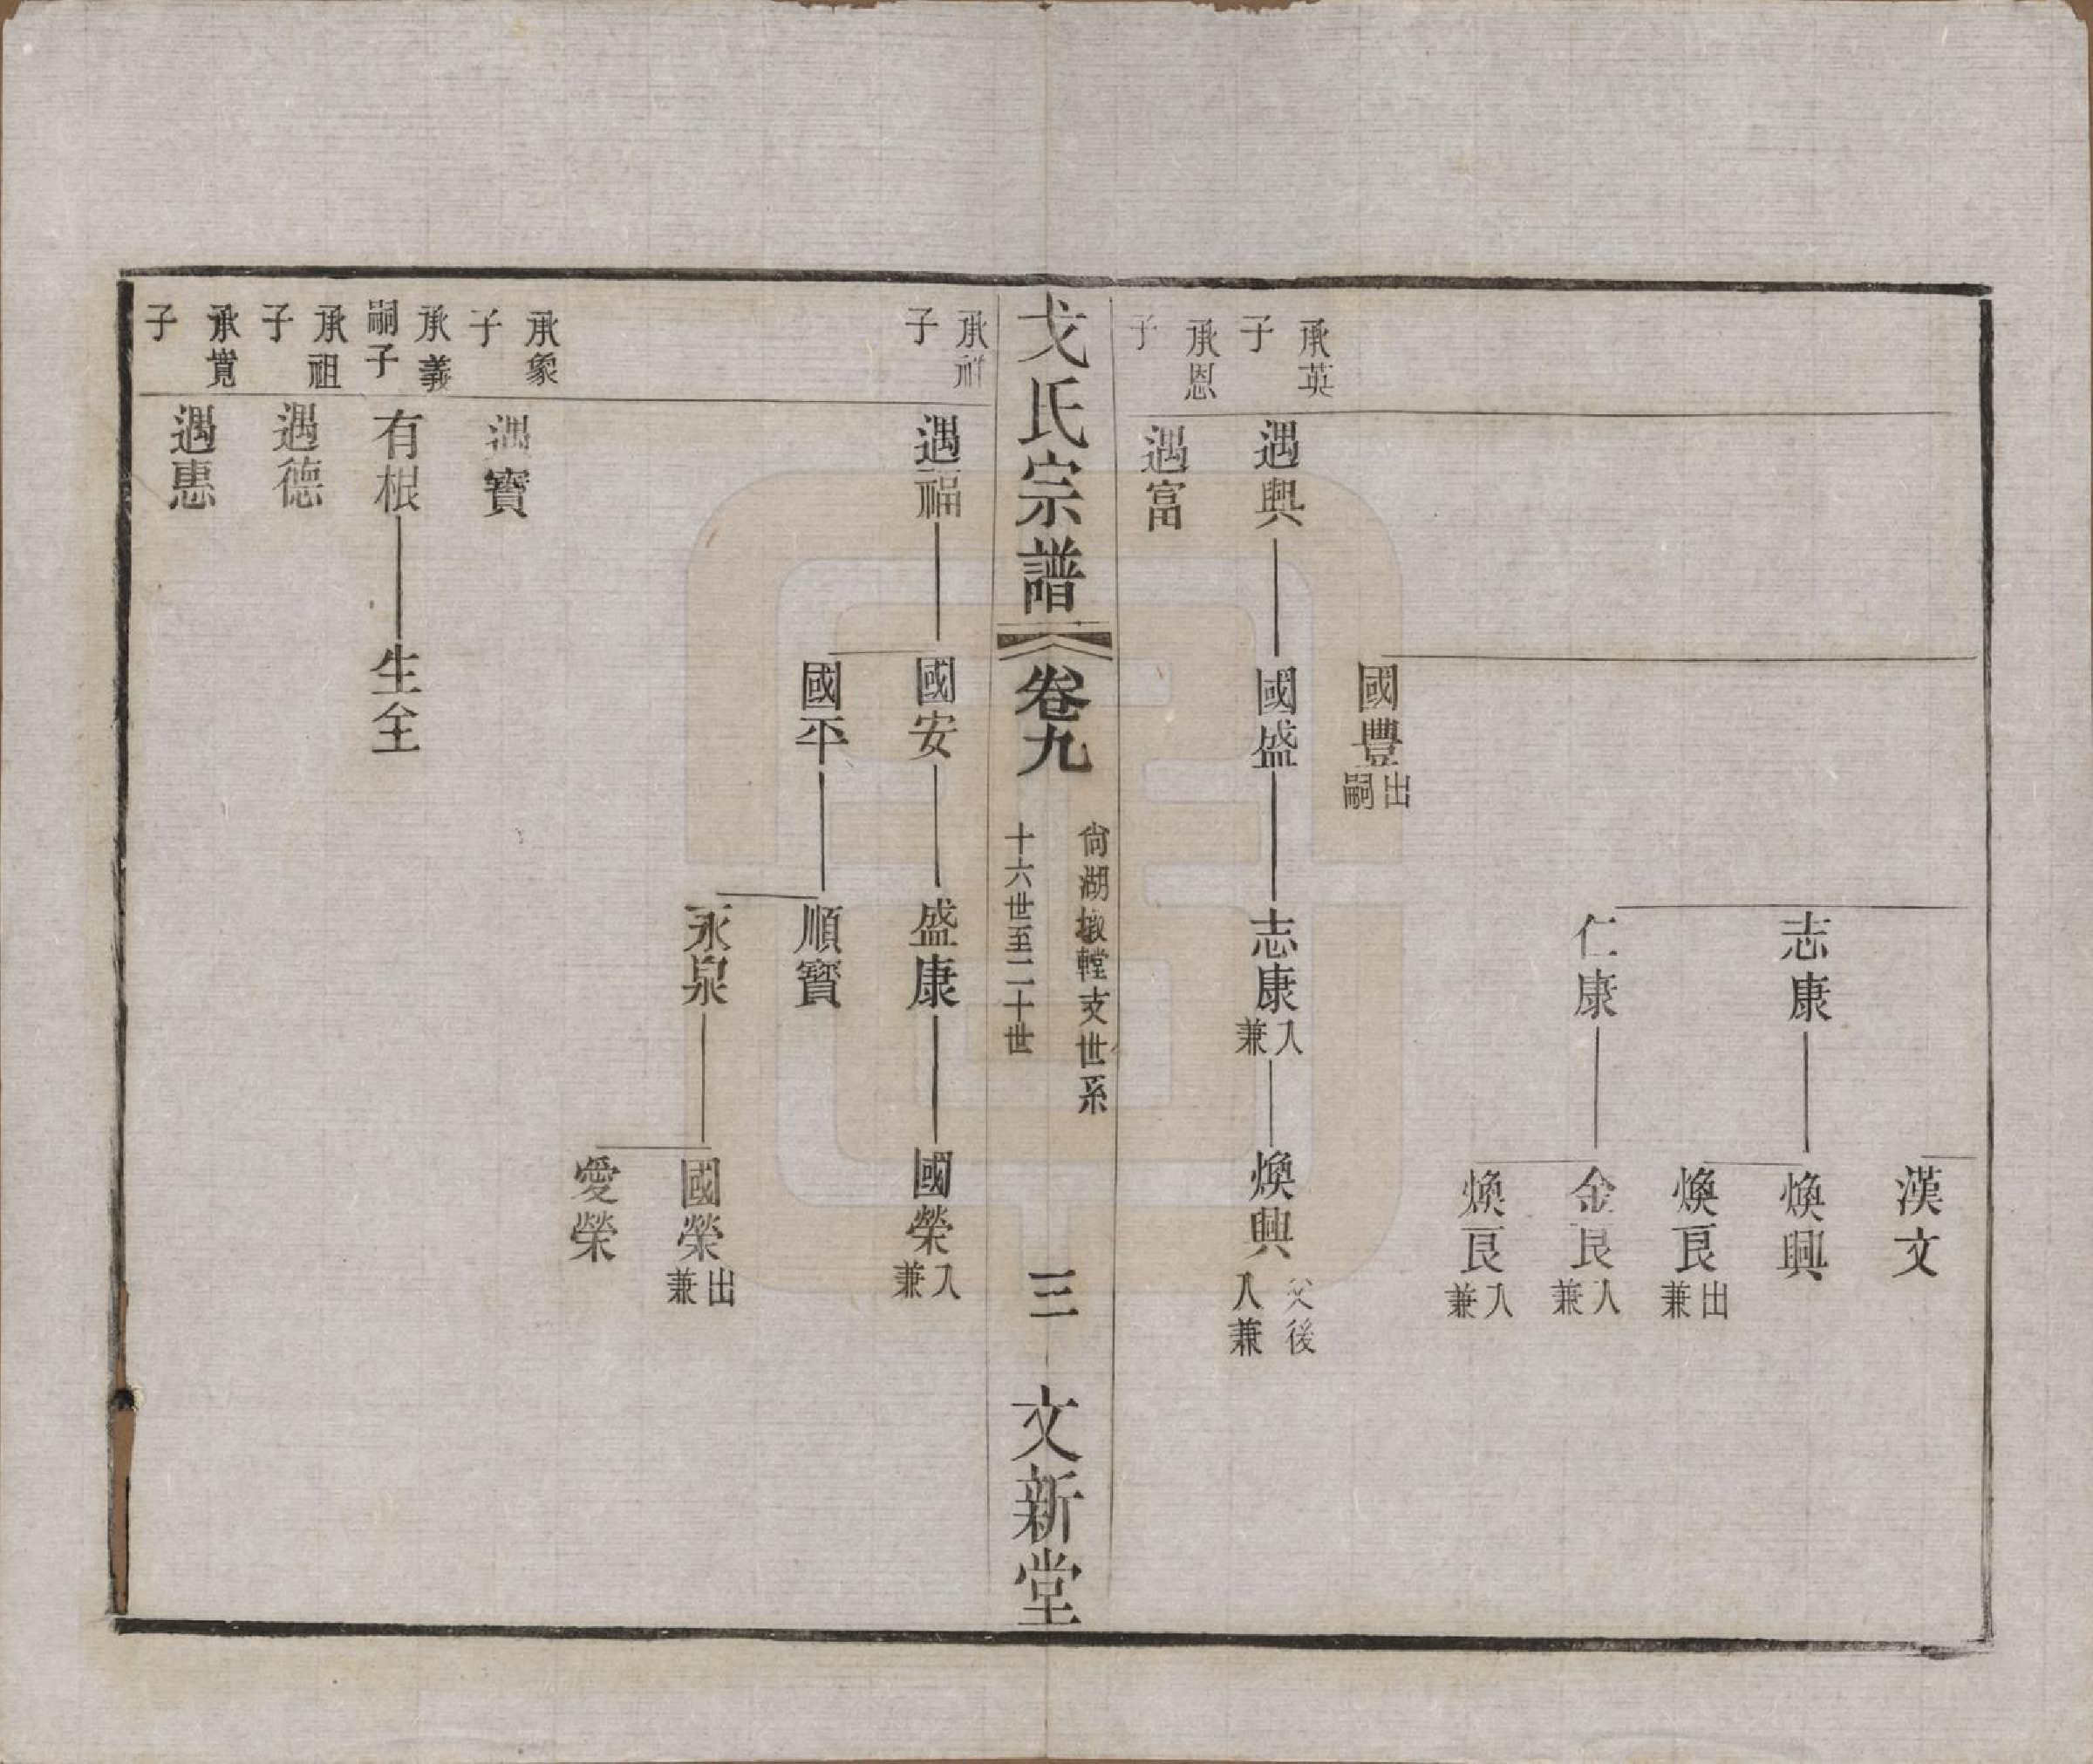 漢文
志康
煥興
煥良出兼
仁康
金良入兼
煥良入兼
國豐出嗣
承英子
遇興
國盛
志康入兼
煥興父後入兼
承恩子
遇富
戈氏宗譜
卷九
尙湖墩𨎋支世系
十六世至二十世
三
文新堂
承祥子
遇福
國安
盛康
國榮入兼
國平
順寶
永泉
國榮出兼
愛榮
承象子
遇寶
承義嗣子
有根
生全
承祖子
遇德
承寬子
遇惠